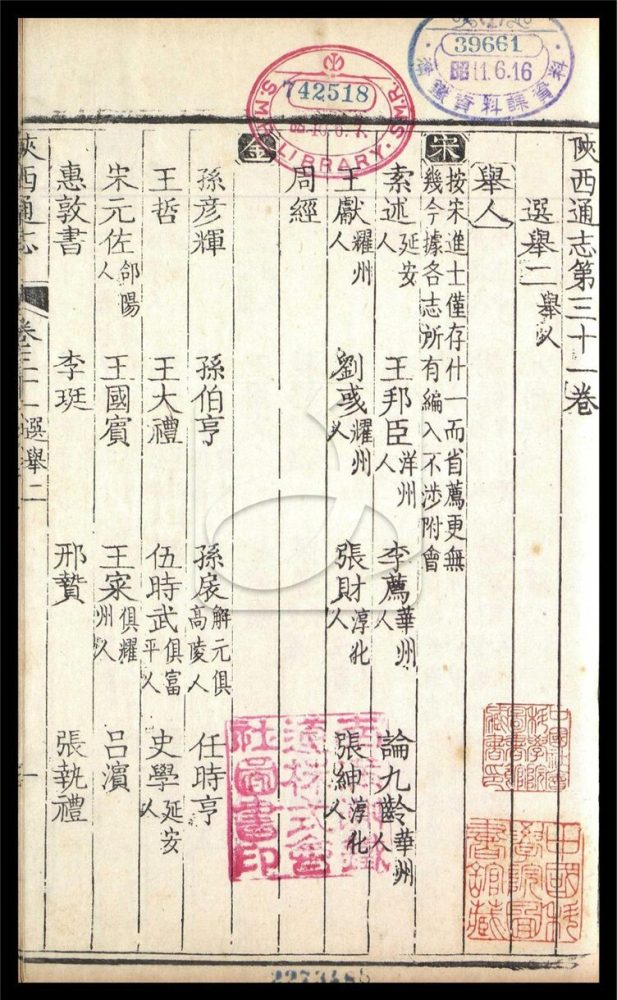 陝西通志第三十一卷
選舉二 舉人
舉人
宋
按宋進士僅存什一而省薦更無
幾今據各志所有編入不涉附會
素述 延安人 王邦臣 洋州人 李薦 華州人 論九齡 華州人
王獻 耀州人 劉彧 耀州人 張財 淳化人 張紳 淳化人
周經
金
孫彥輝 孫伯亨 孫扆 解元俱高陵人 任時亨
王哲 王大禮 伍時武 俱富平人 史學 延安人
宋元佐 郃陽人 王國賓 王寀 俱耀州人 呂濱
惠敦書 李珽 邢贊 張執禮
陝西通志 卷三十一 選舉二 一
742518
S.M.R. LIBRARY. S.M.R.
39661
昭11.6.16
資料課資料
中國科
學院圖
書館藏
社圖書印
2273486